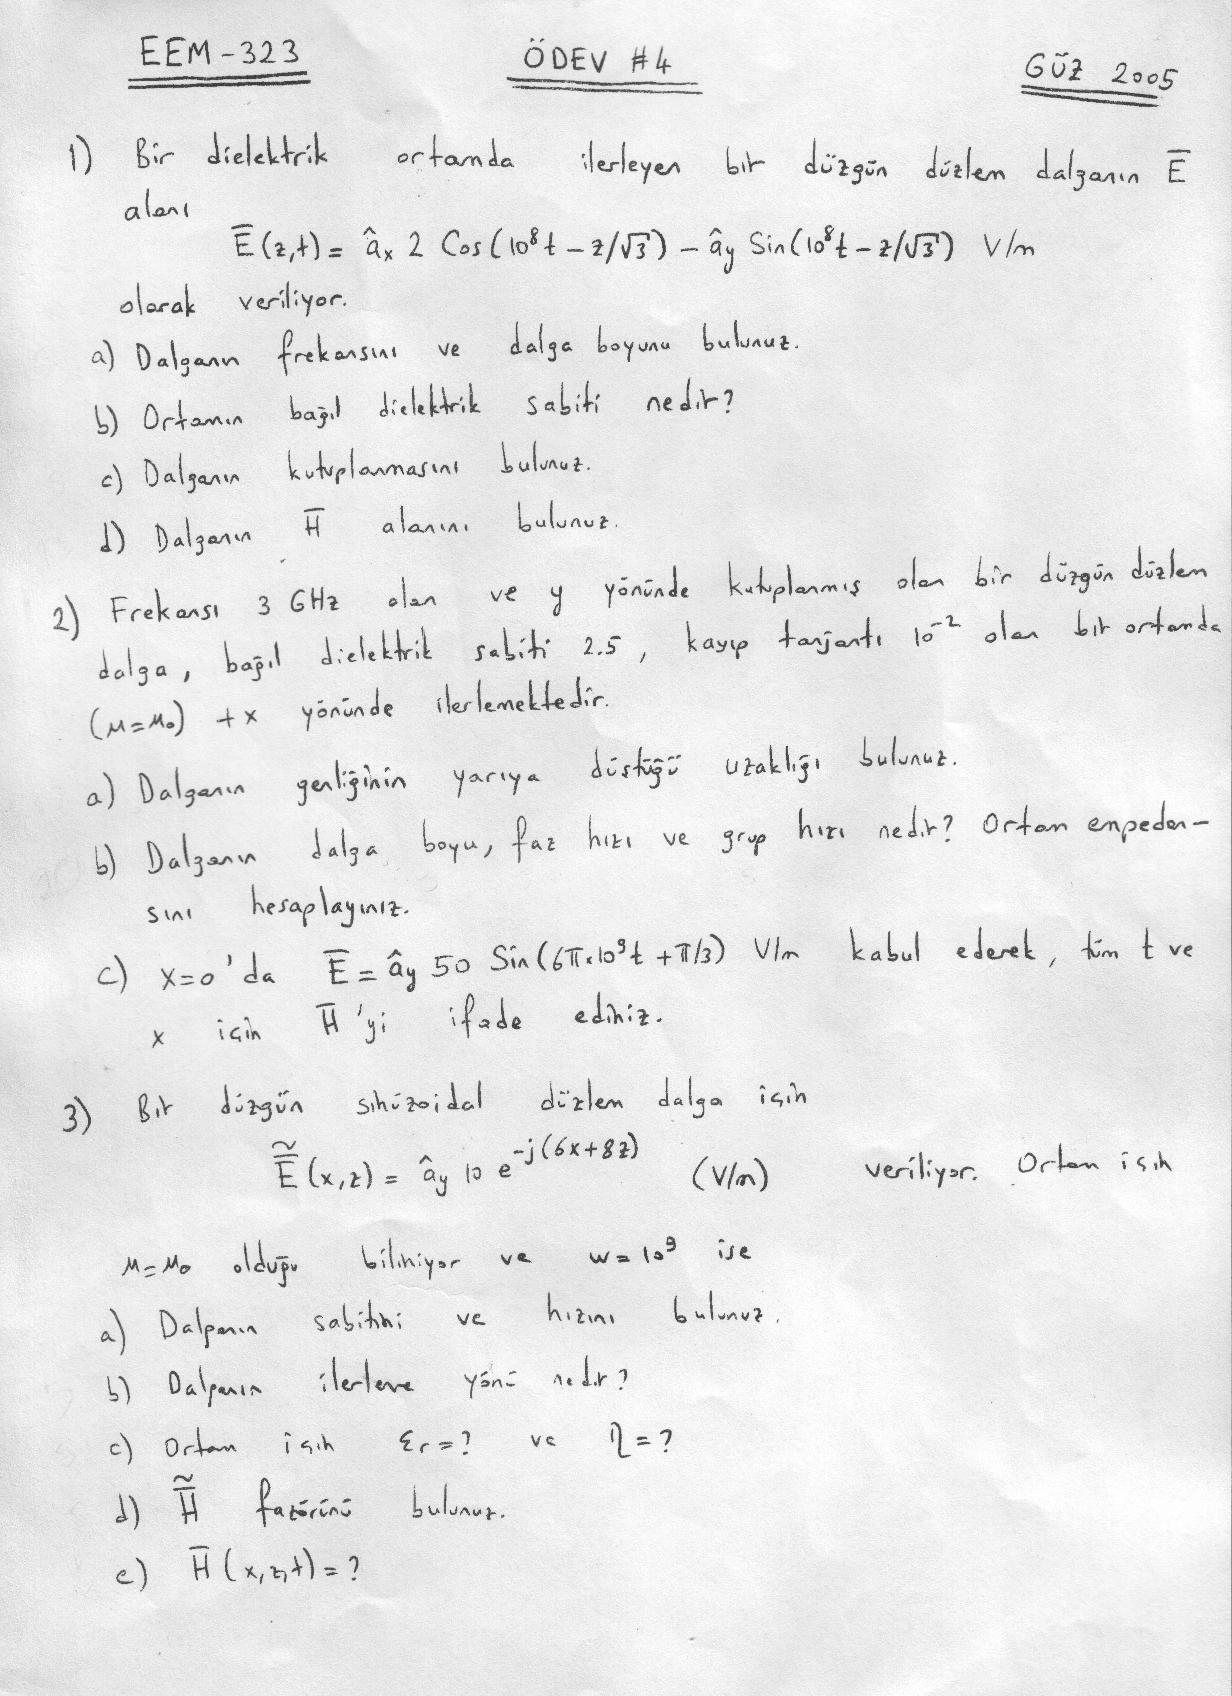 EEM-323 ÖDEV #4 GÜZ 2005
1) Bir dielektrik ortamda ilerleyen bir düzgün düzlem dalganın E̅
alanı
E̅(z,t) = âx 2 Cos(10⁸t - z/√3) - ây Sin(10⁸t - z/√3) V/m
olarak veriliyor.
a) Dalganın frekansını ve dalga boyunu bulunuz.
b) Ortamın bağıl dielektrik sabiti nedir?
c) Dalganın kutuplanmasını bulunuz.
d) Dalganın H̅ alanını bulunuz.
2) Frekansı 3 GHz olan ve y yönünde kutuplanmış olan bir düzgün düzlem
dalga, bağıl dielektrik sabiti 2.5, kayıp tanjantı 10⁻² olan bir ortamda
(μ=μ₀) +x yönünde ilerlemektedir.
a) Dalganın genliğinin yarıya düştüğü uzaklığı bulunuz.
b) Dalganın dalga boyu, faz hızı ve grup hızı nedir? Ortam empedan-
sını hesaplayınız.
c) x=0'da E̅ = ây 50 Sin(6π.10⁹t + π/3) V/m kabul ederek, tüm t ve
x için H̅'yi ifade ediniz.
3) Bir düzgün sinüzoidal düzlem dalga için
Ẽ̅(x,z) = ây 10 e^-j(6x+8z) (V/m) veriliyor. Ortam için
μ=μ₀ olduğu biliniyor ve w=10⁹ ise
a) Dalganın sabitini ve hızını bulunuz.
b) Dalganın ilerleme yönü nedir?
c) Ortam için εr=? ve η=?
d) H̃̅ fazörünü bulunuz.
e) H̅(x,z,t)=?